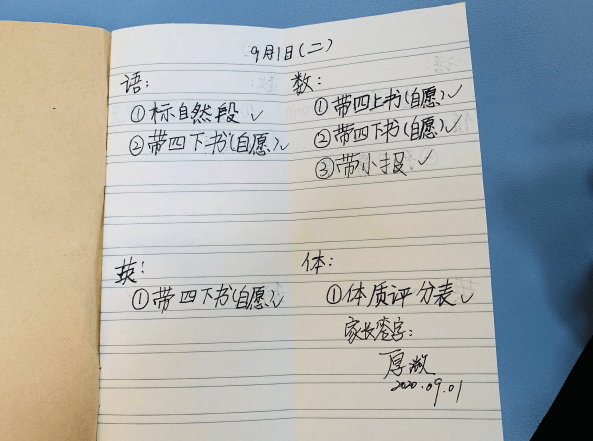 9月1日(二)
语:
①标自然段✓
②带四下书(自愿)✓
数:
①带四上书(自愿)✓
②带四下书(自愿)✓
③带小报✓
英:
①带四下书(自愿)✓
体:
①体质评分表✓
家长签字:
2020.09.01